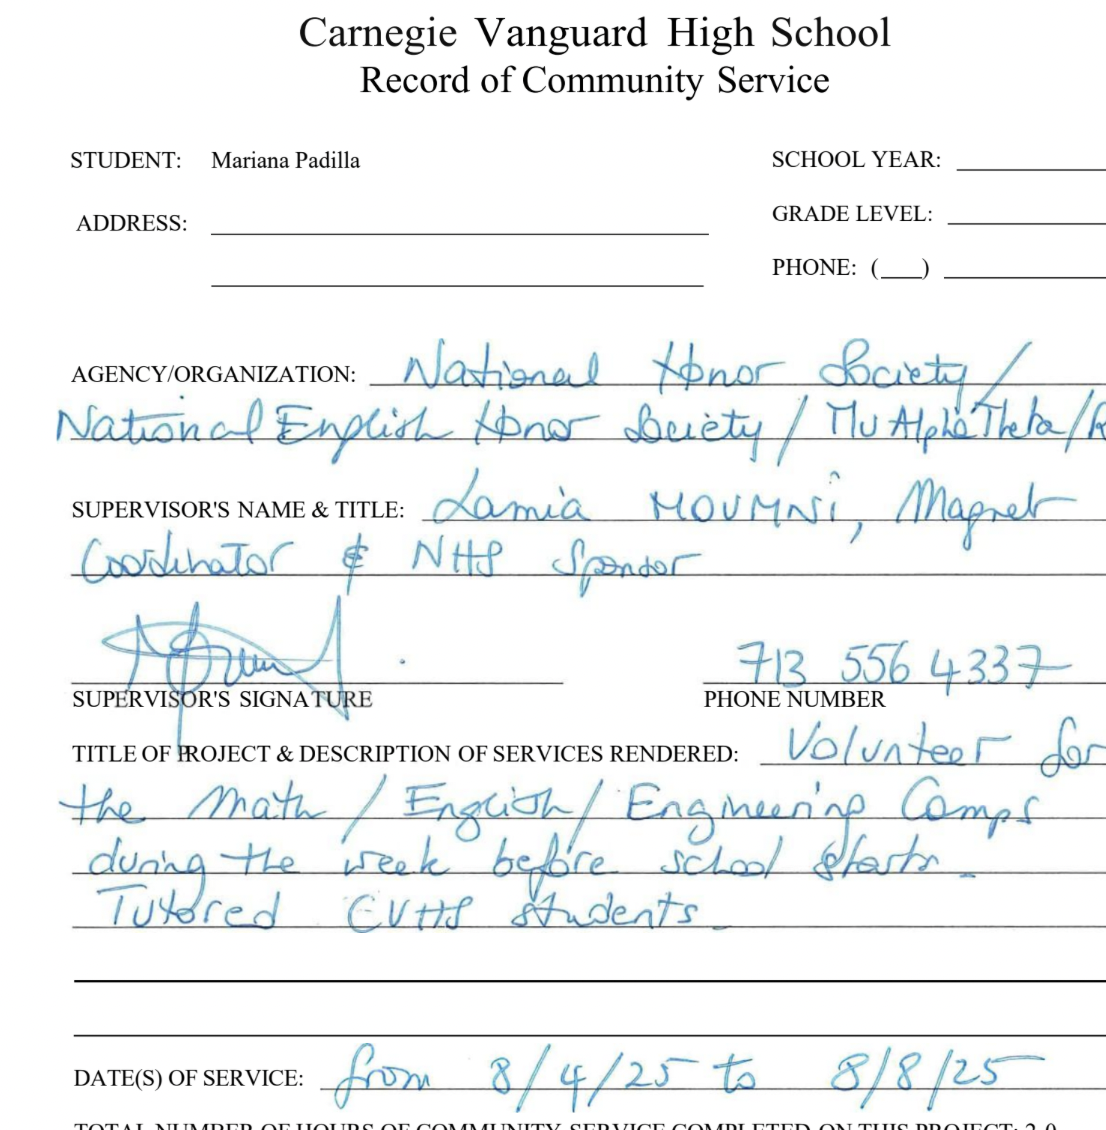 Carnegie Vanguard High School
Record of Community Service
STUDENT: Mariana Padilla
SCHOOL YEAR:
ADDRESS:
GRADE LEVEL:
PHONE: (___)
AGENCY/ORGANIZATION: National Honor Society/
National English Honor Society / Mu Alpha Theta/
SUPERVISOR'S NAME & TITLE: Lamia MOUMNi, Magnet
Coordinator & NHS Sponsor
713 556 4337
SUPERVISOR'S SIGNATURE PHONE NUMBER
TITLE OF PROJECT & DESCRIPTION OF SERVICES RENDERED: Volunteer for
the Math / English / Engineering Camps
during the week before school starts.
Tutored CVHS students.
DATE(S) OF SERVICE: from 8/4/25 to 8/8/25
TOTAL NUMBER OF HOURS OF COMMUNITY SERVICE COMPLETED ON THIS PROJECT: 2.0